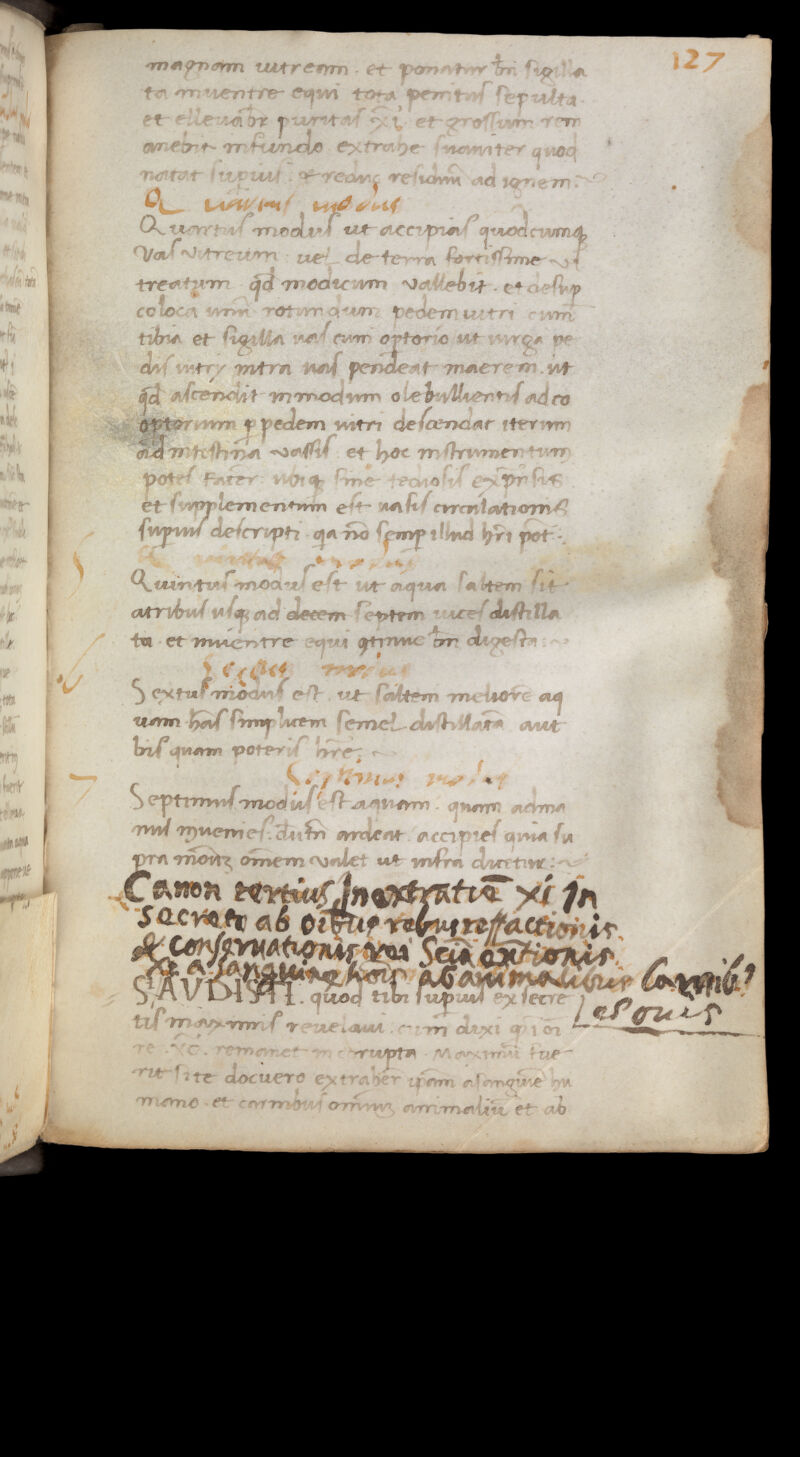 127
magnam uitream. et ponatur bn̄ sigilla
ta inuentre equi tota penitus sepulta.
et elleuabr̄ puritas xi. et grossum rem
anebit infundo. extrahe suauiter quod
natat supius. & reduc residuū ad ignem.
Quartus modus
Quartus modus ut accipias quodcumq;
Vas vitreum. uel de terra fortissime vi
treatum qd̄ modicum vallebit. et desup̄
coloca unū rotundum pedem uitri cum
tibia et sigilla uas cum optorio ut uirga pe
dis uitry intra uas pendeat maerem. ut
qd̄ ascendit inmodum olebullientis ad co
optorium p pedem uitri descendat iterum
ad intestina vassis. et hoc instrumentum
potes facer̄ ubiq; sine tediosis exp̄nsis
et supplementum est uasis circulationis
supius descripti. qa nō semp̄ illud hr̄i pot̄.
5
Quintus modus
Quintus modus est ut aqua saltem sit
atribus usq; ad decem septem uices distilla
ta. et inuientre equi gtinue bn̄ digesta.
6
Sextus modus
Sextus modus est. ut saltem meliorē aq
uam has simplicem semel distillatā aut
bis quam poteris hr̄e.
7
Septimus modus
Septimus modus est aquam. quam adma
nus inuenies. dūtn̄ ardeat. accipies quia su
pra omēm valet ut infra dicetur.
Canon tertius Inextratiōē xi in
secreto ab oībus rebus reffactionis
& conseruationis
xe a sanguine hoīs ab animalibus Carnibꝰ
les ouis
SAVDISTI. quod tibi supius exsecre
tis maxmis reuelaui. cum dixi q i oī
re. xē. remanet incorupta. Maximū fue
rit si te docuero extraher̄ ip̄am asanguīe hu
mano. et carnibus omniuꝫ animaliū et ab